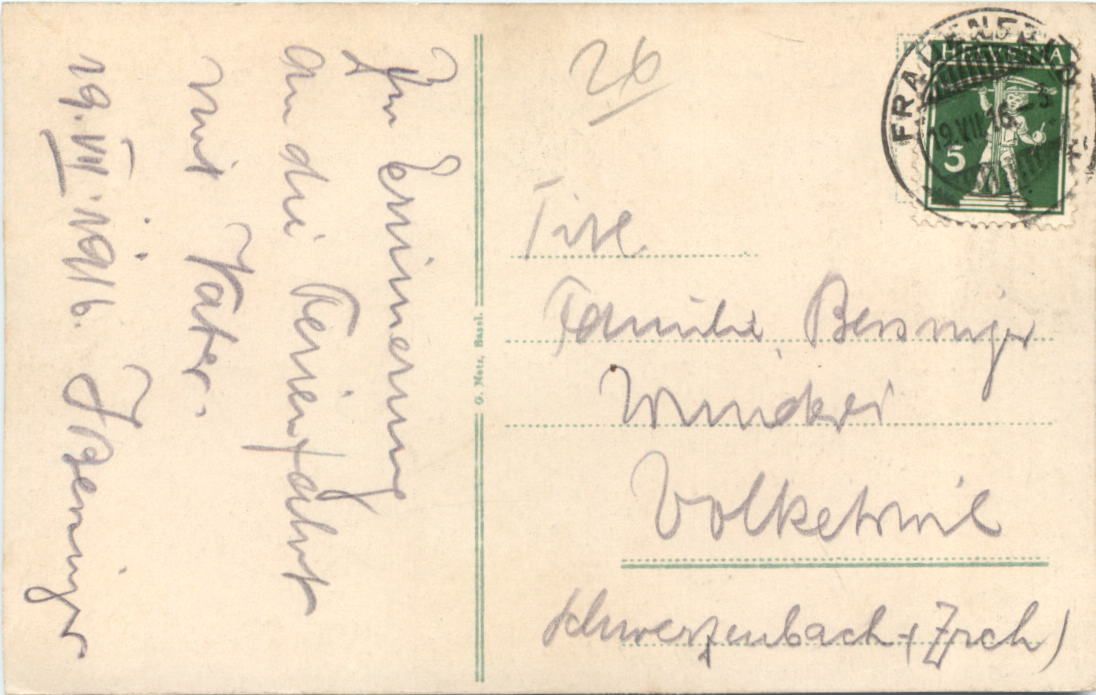 Zur Erinnerung
an die Ferienfahrt
mit Vater.
19. VII. 1916. J Benninger
G. Metz, Basel.
26
FRAUENFELD
19.VII.16.-3
HELVETIA
5
Titl.
Familie
Volketswil
Schwerzenbach (Zrch)